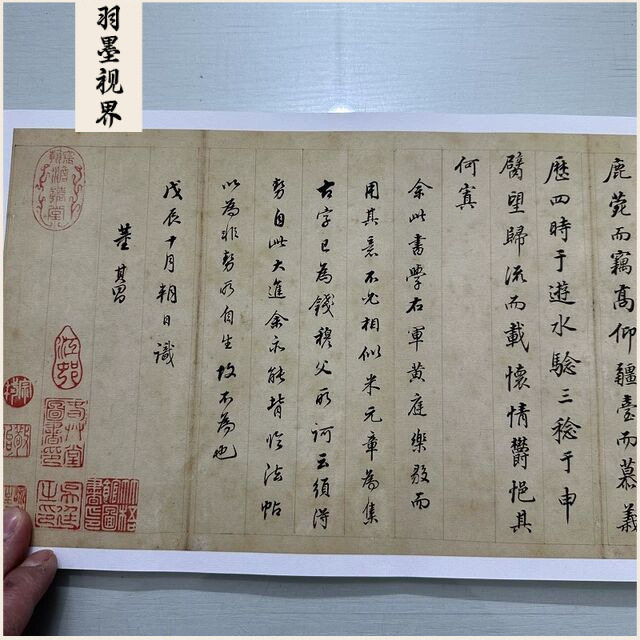 鹿菀而竊高仰疆臺而慕義
歷四時于遊水驗三稔于申
臂望歸流而載懷情鬱悒其
何寘
余此書學右軍黄庭樂毅而
用其意不必相似米元章為集
古字已為錢穆父所訶云須得
勢自此大進余亦能背臨法帖
以為非勢所自生故不為也
戊辰十月朔日識
董其昌
羽墨视界